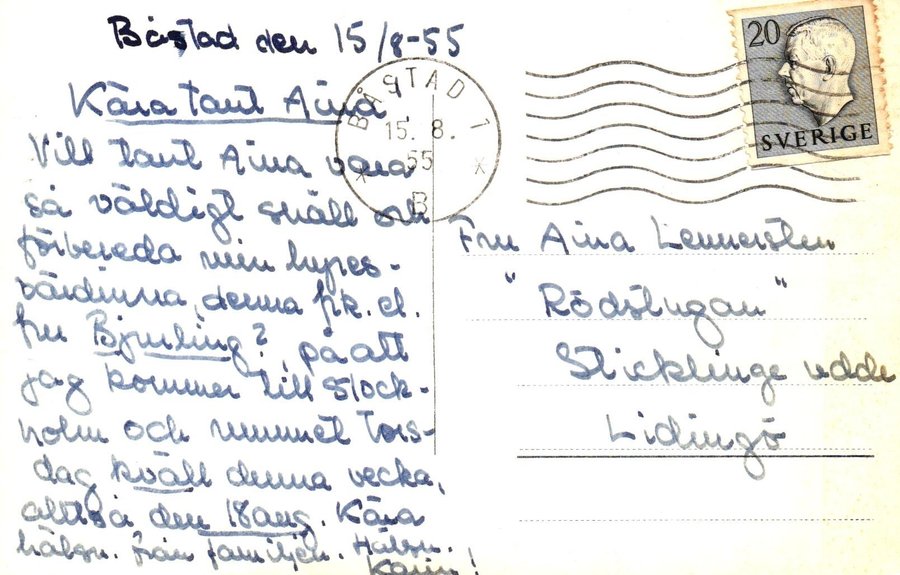 Båstad den 15/8-55
Kära tant Aina
Vill tant Aina vara
så väldigt snäll och
förbereda min hyres-
värdinna, denna frk. el.
fru Bjurling?, på att
jag kommer till Stock-
holm och rummet tors-
dag kväll denna vecka,
alltså den 18 aug. Kära
hälsn. från familjen. Hälsn.
Karin!
BÅSTAD 1
15. 8.
55
B
20
SVERIGE
Fru Aina Lennersten
"Rödstugan"
Sticklinge udde
Lidingö